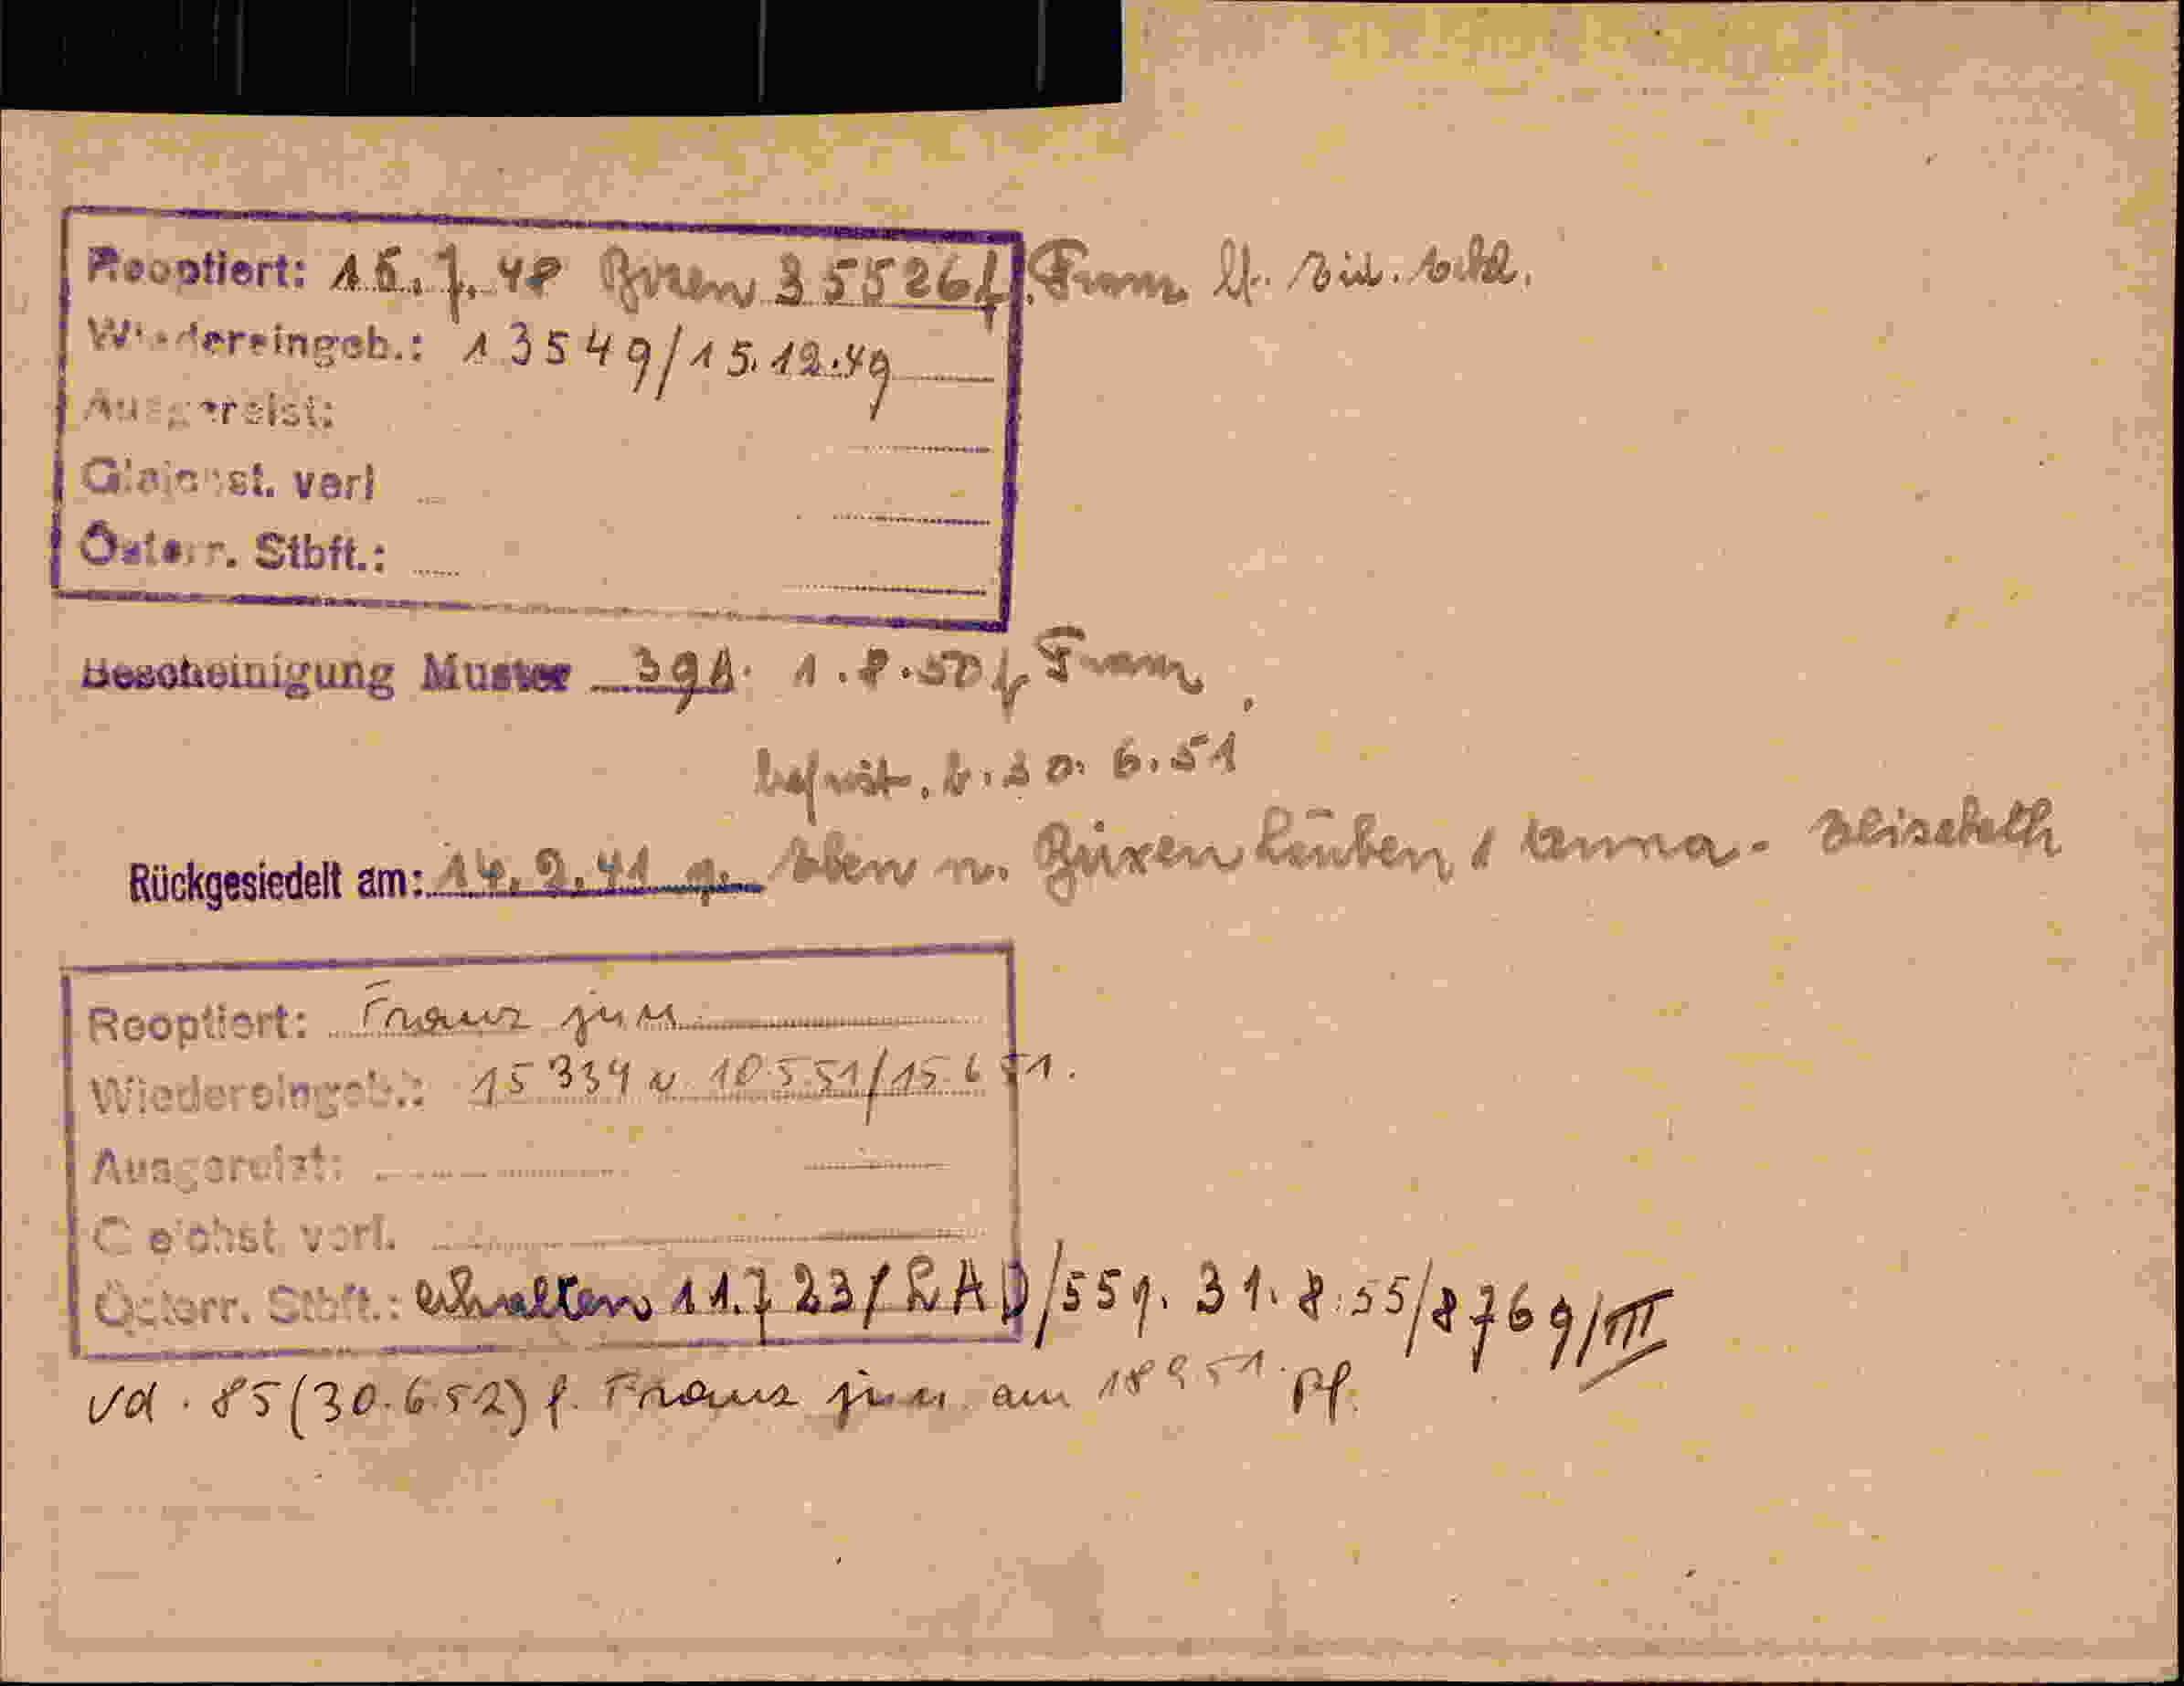 Reoptiert: 16.7.48 Brixen 35526 f. Franz lt.
Wiedereingeb.: 13549/15.12.49
Ausgereist:
Gleichst. verl
Österr. Stbft.:
Bescheinigung Muster 39A. 1.8.50 f. Franz,
befrist. b. 30. 6.51
Rückgesiedelt am: 14.2.41 g. n. Brixen Anna - Elisabeth
Reoptiert: Franz jun
Wiedereingeb.: 15334 v. 10.5.51/15.6 51.
Ausgereist:
Gleichst verl.
Österr. Stbft.: erhalten 11.723/LAD/55 v. 31.8.55/8769/III
Vd. 85 (30.6.52) f. Franz jun am 18 9 51. Pf.